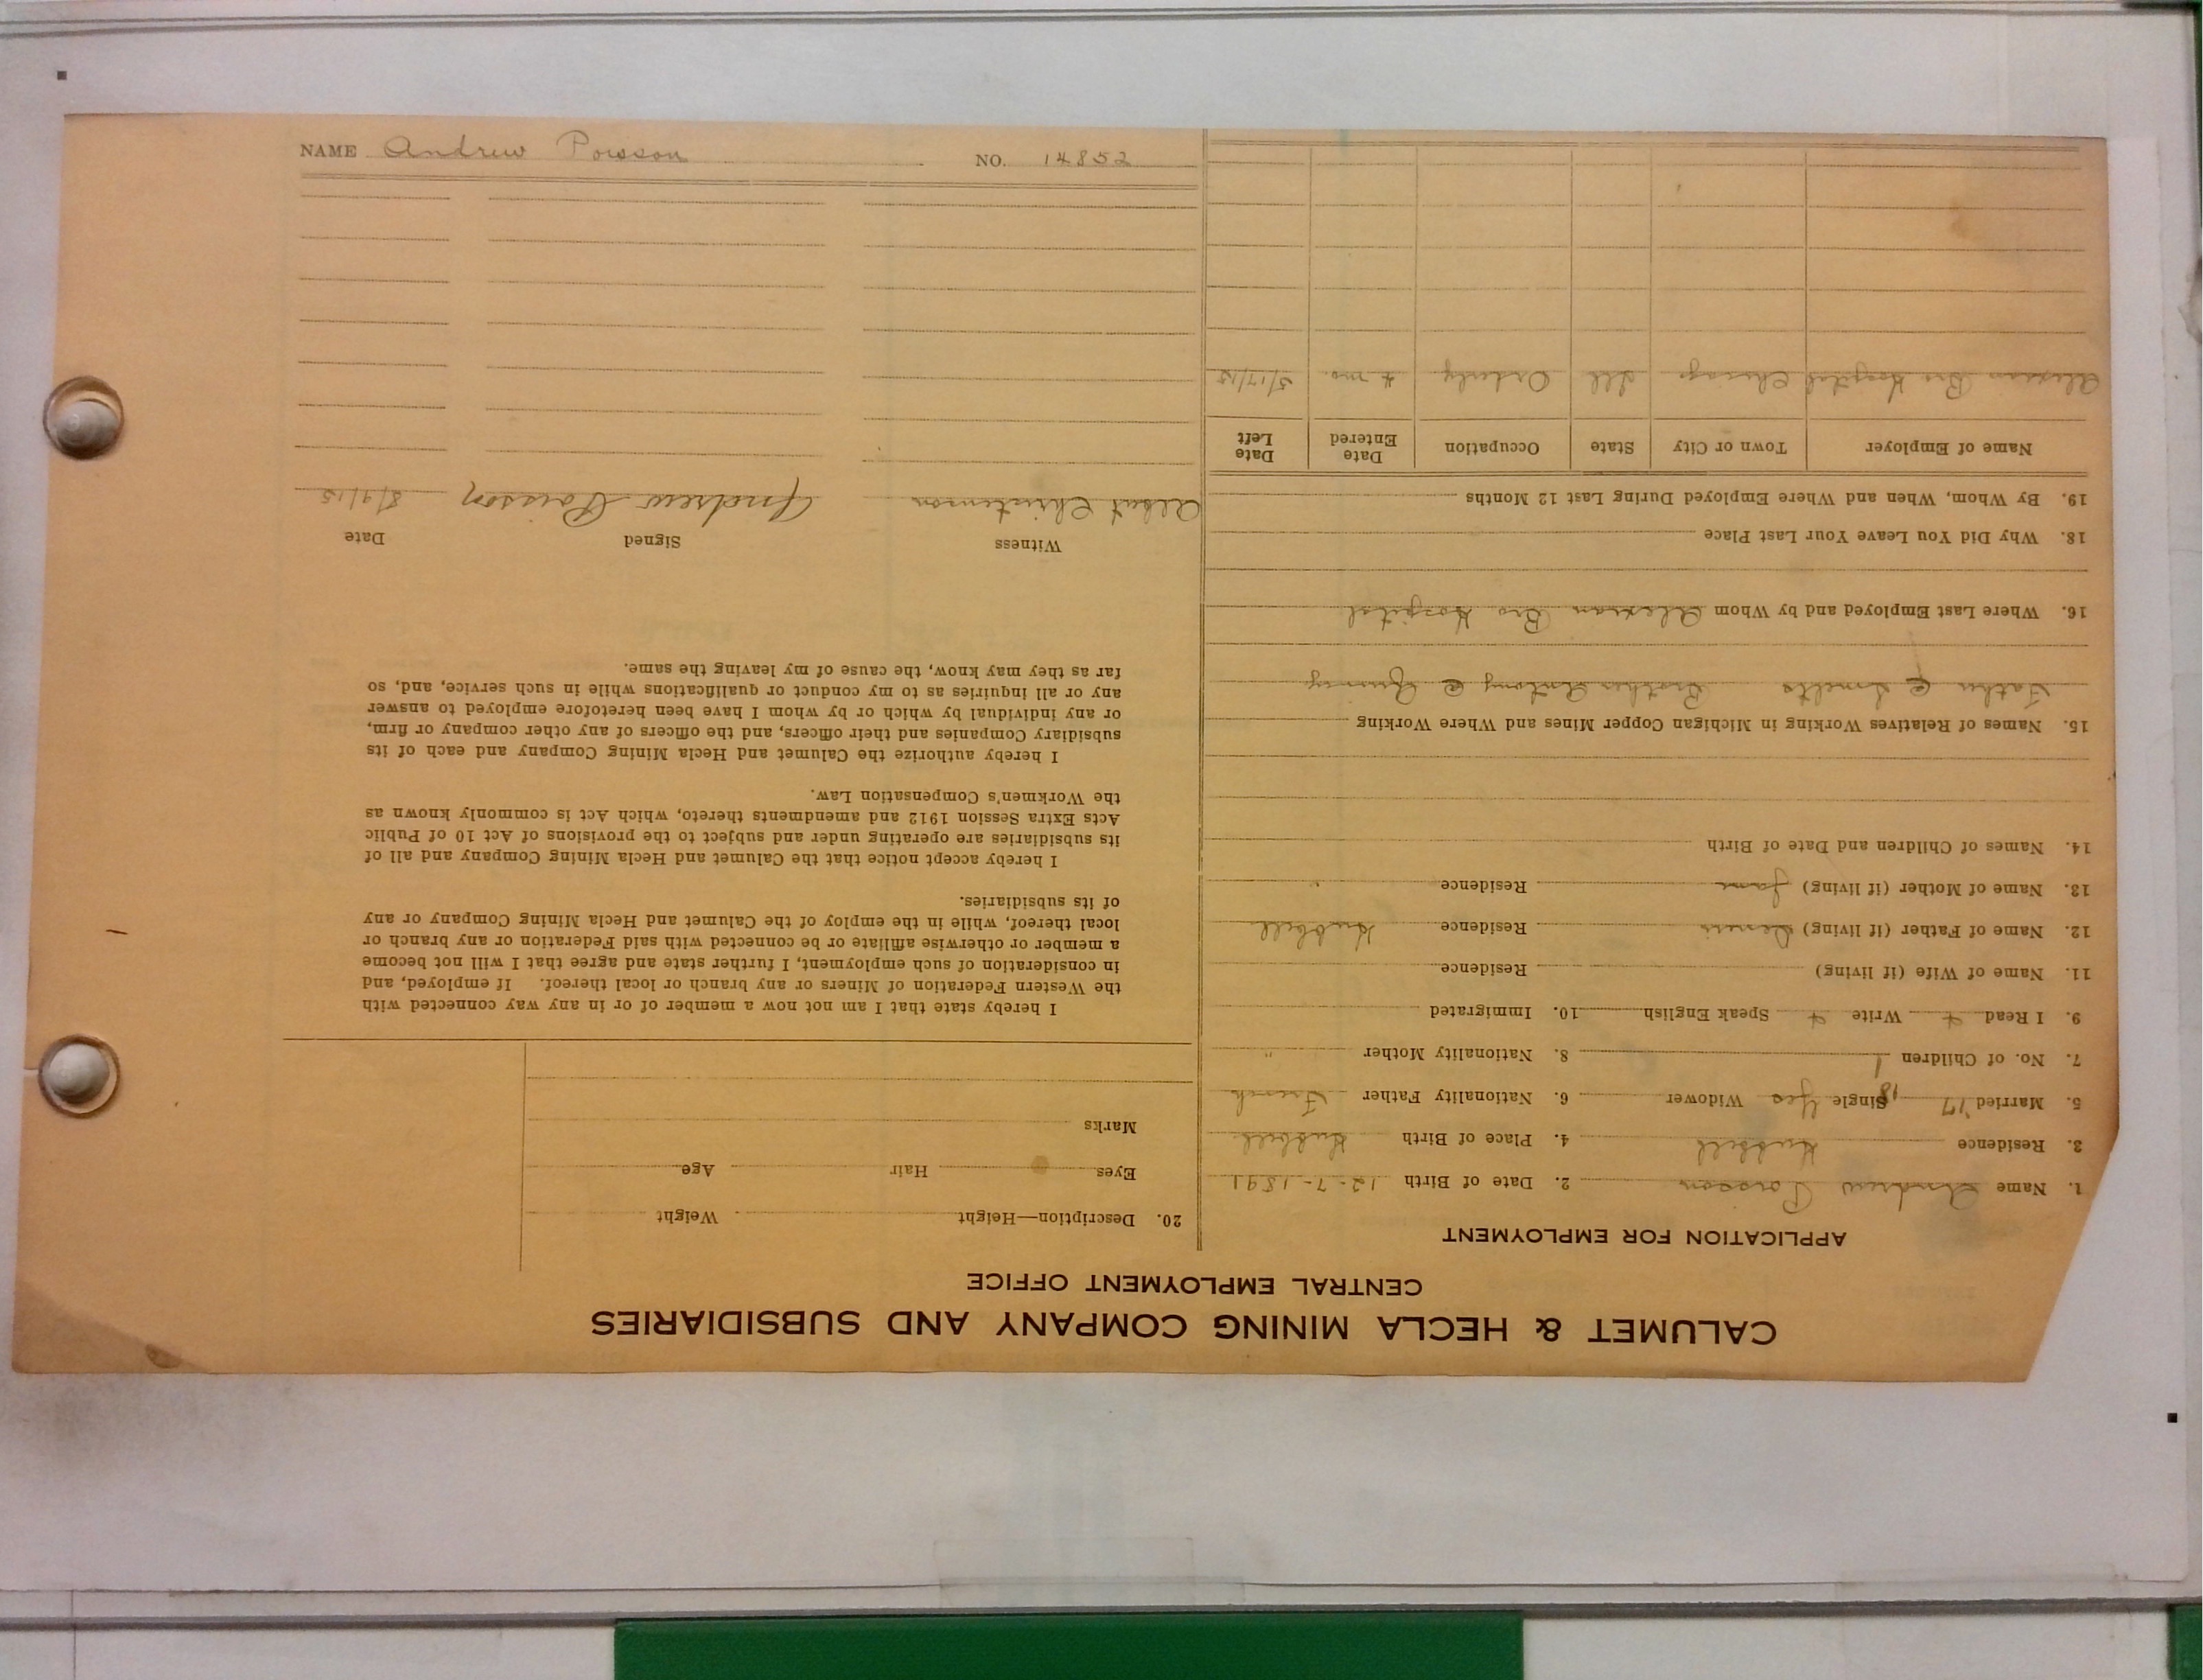 CALUMET & HECLA MINING COMPANY AND SUBSIDIARIES
CENTRAL EMPLOYMENT OFFICE
APPLICATION FOR EMPLOYMENT
1. Name Andrew Poisson 2. Date of Birth 12-7-1891
3. Residence Hubbell 4. Place of Birth Hubbell
5. Married '17 Single Yes Widower 6. Nationality Father French
7. No. of Children 1 8. Nationality Mother "
9. I Read Write Speak English 10. Immigrated
11. Name of Wife (if living) Residence
12. Name of Father (if living) Residence Hubbell
13. Name of Mother (if living) Jane Residence "
14. Names of Children and Date of Birth
15. Names of Relatives Working in Michigan Copper Mines and Where Working
Father @ Smelter Brother Antony @ Quincy
16. Where Last Employed and by Whom Alexian Bro Hospital
18. Why Did You Leave Your Last Place
19. By Whom, When and Where Employed During Last 12 Months
Name of Employer Town or City State Occupation Date Entered Date Left
Alexian Bro Hospital Chicago Ill Orderly 4 mo. 5/17/15
20. Description—Height Weight
Eyes Hair Age
Marks
I hereby state that I am not now a member of or in any way connected with
the Western Federation of Miners or any branch or local thereof. If employed, and
in consideration of such employment, I further state and agree that I will not become
a member or otherwise affiliate or be connected with said Federation or any branch or
local thereof, while in the employ of the Calumet and Hecla Mining Company or any
of its subsidiaries.
I hereby accept notice that the Calumet and Hecla Mining Company and all of
its subsidiaries are operating under and subject to the provisions of Act 10 of Public
Acts Extra Session 1912 and amendments thereto, which Act is commonly known as
the Workmen's Compensation Law.
I hereby authorize the Calumet and Hecla Mining Company and each of its
subsidiary Companies and their officers, and the officers of any other company or firm,
or any individual by which or by whom I have been heretofore employed to answer
any or all inquiries as to my conduct or qualifications while in such service, and, so
far as they may know, the cause of my leaving the same.
Witness Signed Date
Albert Christenson Andrew Poisson 8/9/15
NAME Andrew Poisson NO. 14852